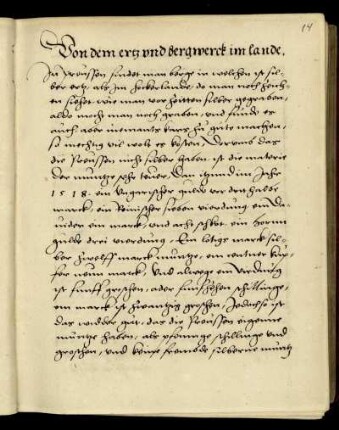 14
Von dem ertz vnd bergwerck im lande.
In Preussen findet man berge in welchen ist sil-
ber ertz, als im hockerlande, do man noch hewt
siehet wie man vor zeitten silber gegraben,
aldo noch man noch graben, vnd findet es
auch aber niemants kans zu gute machen,
so mechtig vil wols es kosten, Derumb das
die Preussen nicht silber haben, ist die materie
der muntz sehr teuer, Dan itzund im Jahr
1518. ein Vngarischer gulde vor den halbe
marck, ein Reinischer sieben vierdung
ein marck, vnd acht schkot. ein horn
gulde drei vierdung, Ein lötigs marck sil-
ber zwelff marck muntze, ein centner kup-
fer neun marck. Vnd alwege ein verdung
ist funff groschen, oder funfzehen schillinge,
ein marck ist zwantzig groschen, Jedoch ist
das wider gut, das die Preussen eigene
muntze haben, als pfennige schillinge vnd
groschen, vnd keine fremde silberne muntz